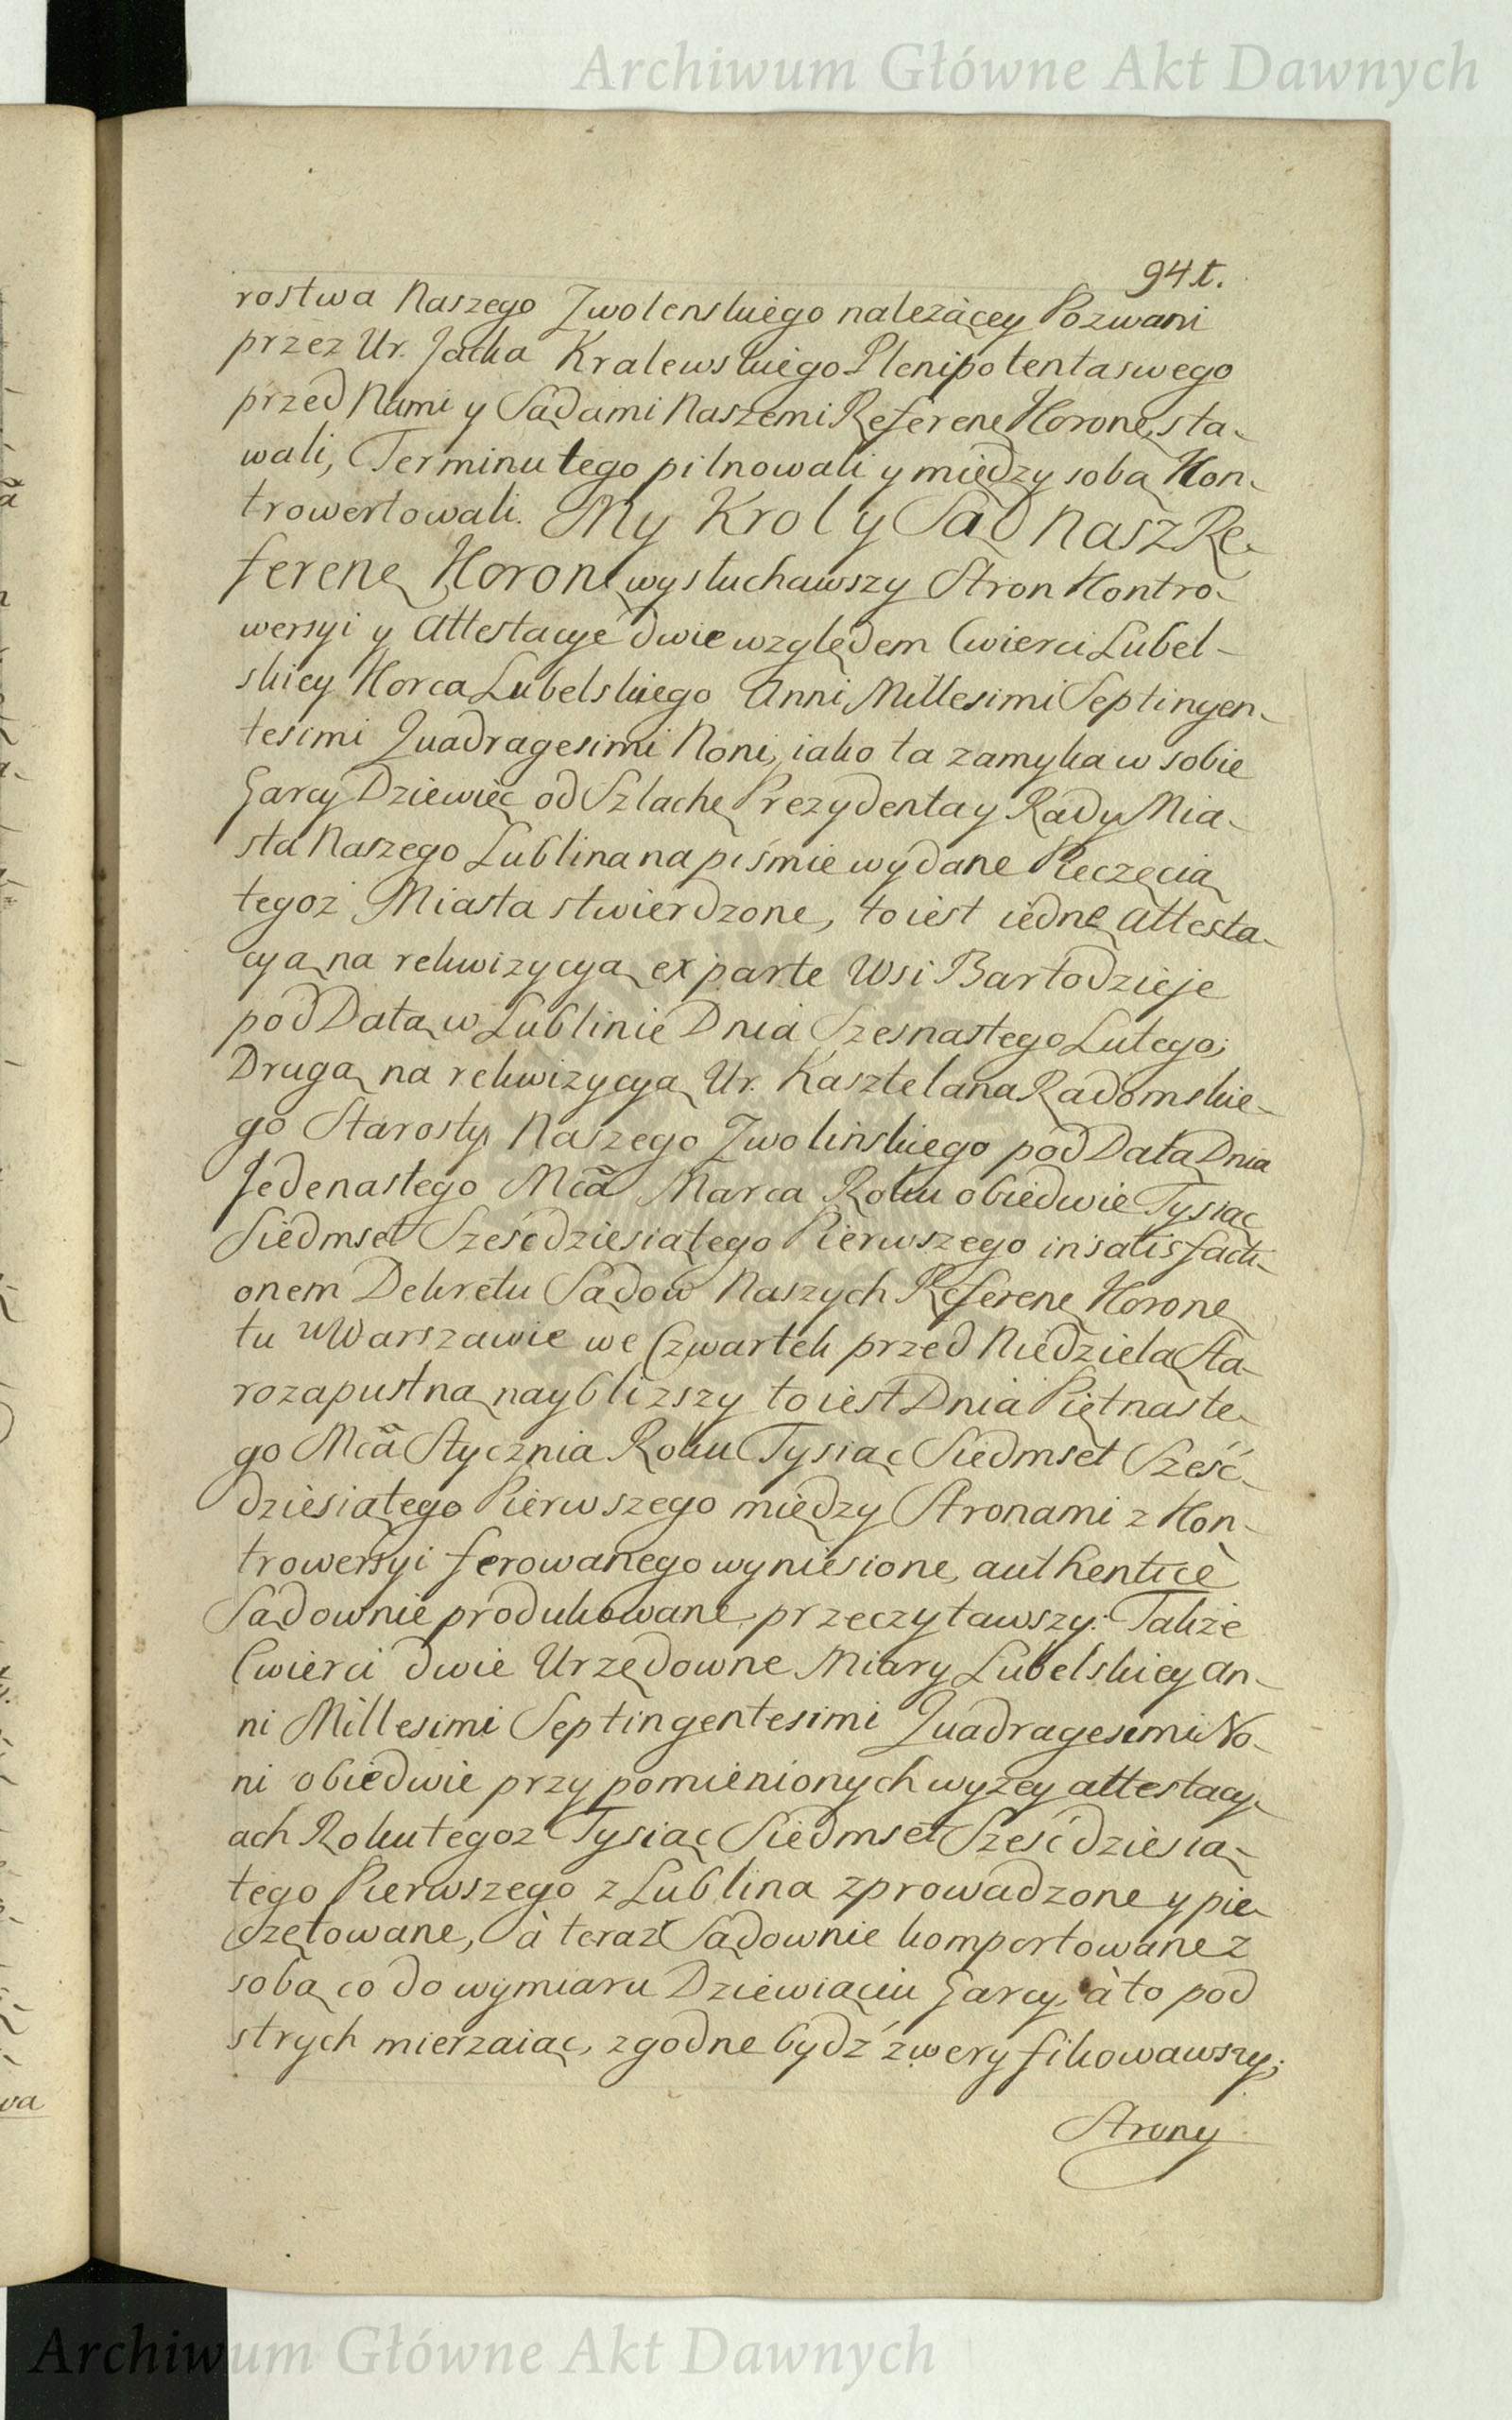 Archiwum Główne Akt Dawnych
94.t.
rostwa Naszego Zwolenskiego nalezącey Pozwani
przez Ur. Jacka Kralewskiego Plenipotenta swego
przed Nami y Sądami Naszemi Referen: Koron: sta-
wali, Terminu tego pilnowali y między sobą Kon-
trowertowali. My Krol y Sąd Nasz Re-
feren: Koron: wysłuchawszy Stron Kontro-
wersyi y Attestacye dwie względem Cwierci Lubel-
skiey Korca Lubelskiego Anni Millesimi Septingen-
tesimi Quadragesimi Noni, iako ta zamyka w sobie
Garcy Dziewięć od Szlache: Prezydenta y Rady Mia-
sta Naszego Lublina na piśmie wydane Pieczęcią
tegoż Miasta stwierdzone, to iest iedne attesta-
cyą na rekwizycyą ex parte Wsi Bartodzieje
pod Datą w Lublinie Dnia Szesnastego Lutego;
Drugą na rekwizycyą Ur. Kasztelana Radomskie-
go Starosty Naszego Zwolińskiego pod Datą Dnia
Jedenastego Mca Marca Roku obiedwie Tysiąc
Siedmset Sześcdziesiątego Pierwszego in satisfacti-
onem Dekretu Sądow Naszych Referen: Koron:
tu w Warszawie we Czwartek przed Niedzielą Sta-
rozapustną naybliższy to iest Dnia Piętnaste-
go Mca Stycznia Roku Tysiąc Siedmset Sześć-
dziesiątego Pierwszego między Stronami z Kon-
trowersyi ferowanego wyniesione, authenticè
Sądownie produkowane, przeczytawszy: Takze
Cwierci dwie Urzędowne Miary Lubelskiey An-
ni Millesimi Septingentesimi Quadragesimi No-
ni obiedwie przy pomienionych wyzey attestacy-
ach Roku tegoz Tysiąc Siedmset Sześćdziesią-
tego Pierwszego z Lublina zprowadzone y pie-
czętowane, à teraz Sądownie komportowane z
sobą co do wymiaru Dziewiąciu Garcy, à to pod
strych mierzaiąc, zgodne bydź zweryfikowawszy;
Strony
Archiwum Główne Akt Dawnych